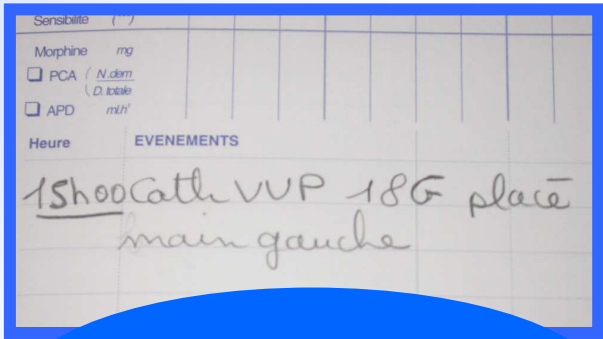 Sensibilité (***)
Morphine mg
PCA ( N.dem
D. totale
APD ml.h⁻¹
Heure EVENEMENTS
15h00 Cath VVP 18G placé
main gauche